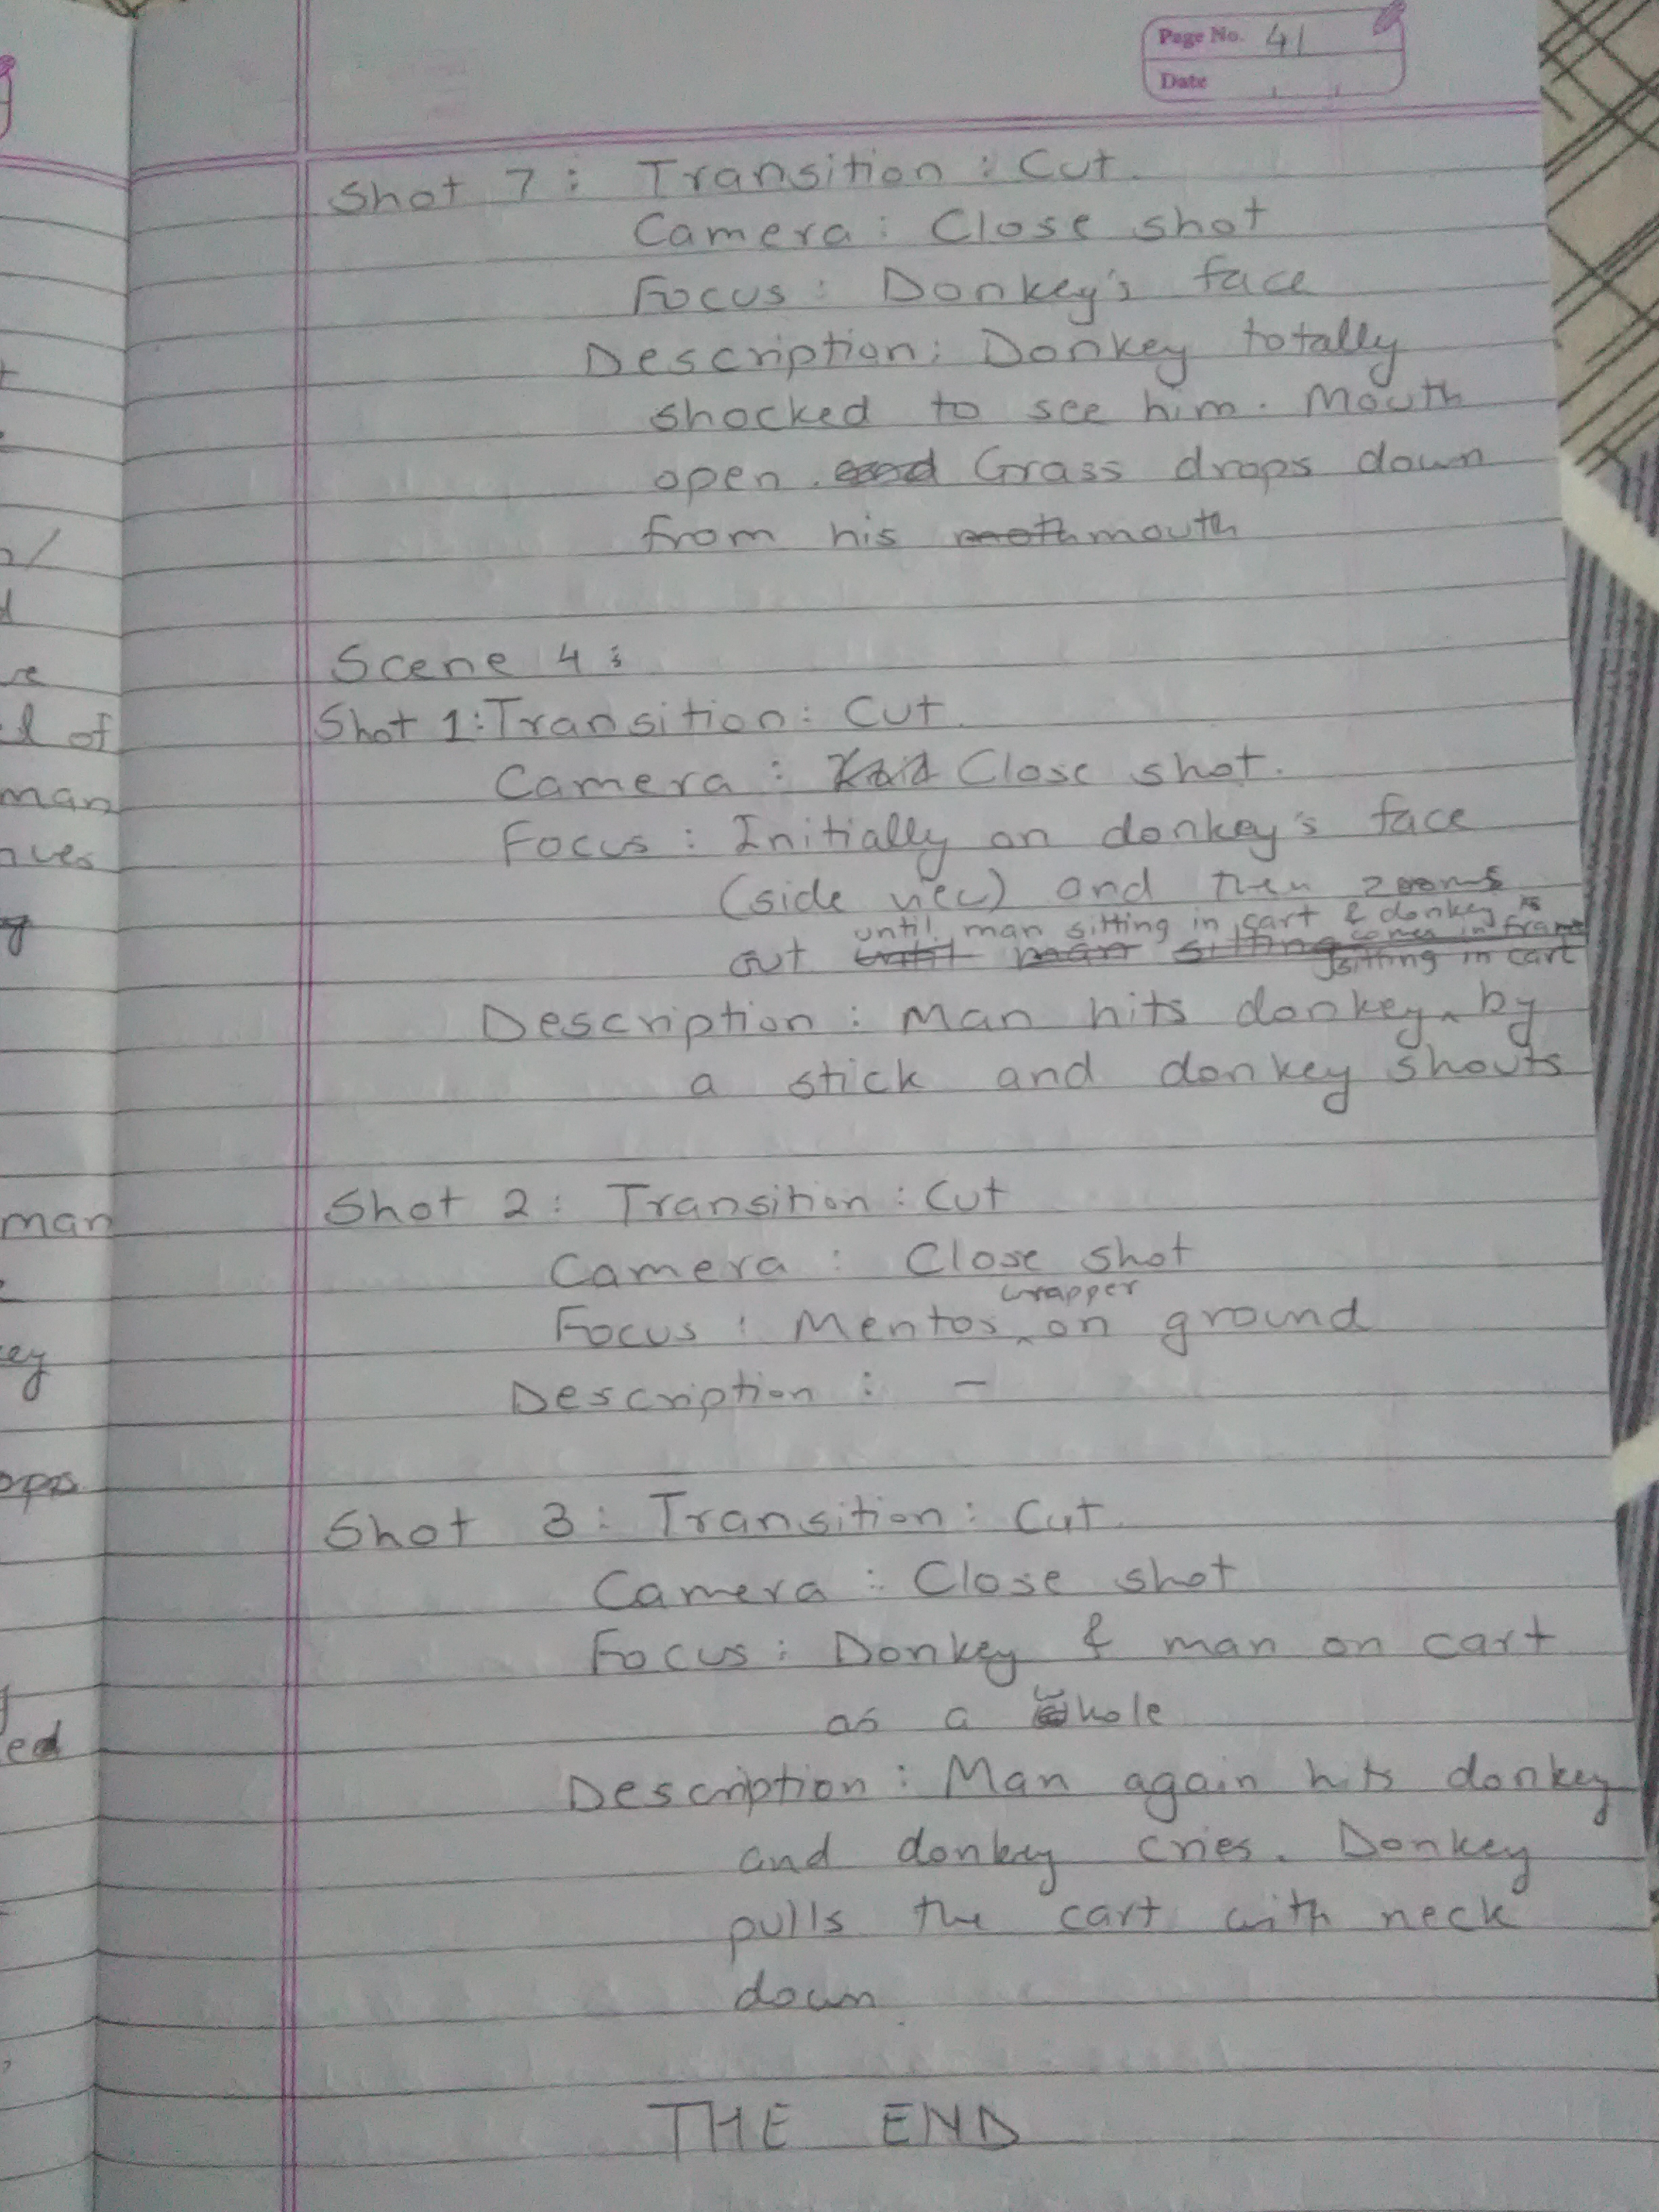 Page No. 41
Date
Shot 7 : Transition : Cut.
Camera : Close shot
Focus : Donkey's face
Description : Donkey totally
shocked to see him. Mouth
open. Grass drops down
from his mouth
Scene 4 :
Shot 1 : Transition : Cut.
Camera : Close shot.
Focus : Initially on donkey's face
(side view) and then zooms
until man sitting in cart & donkey is
comes in frame
out until man sitting
sitting in cart
Description : Man hits donkey by
a stick and donkey shouts
Shot 2 : Transition : Cut
Camera : Close shot
wrapper
Focus : Mentos on ground
Description : -
Shot 3 : Transition : Cut.
Camera : Close shot
Focus : Donkey & man on cart
as a whole
Description : Man again hits donkey
and donkey cries. Donkey
pulls the cart with neck
down
THE END
l of
man
ves
man
ey
opps.
ed